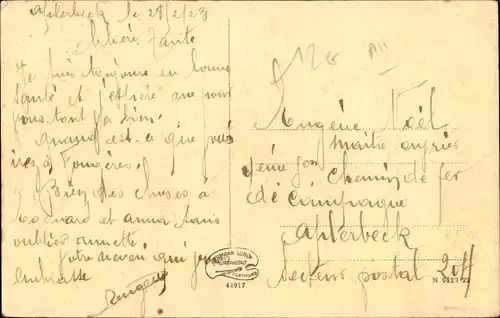 Aplerbeck le 28/2/23
Chère Tante
Je suis toujours en bonne
santé et j'espère que vous
tout va bien
Quand est-ce que vous
irez à Fougères.
Bien des choses à
Edouard et anna sans
oublier annette
Votre neveu qui
embrasse
Eugène
Eugène Noël
maitre ouvrier
Chemin de fer
de campagne
Aplerbeck
Secteur postal
43917